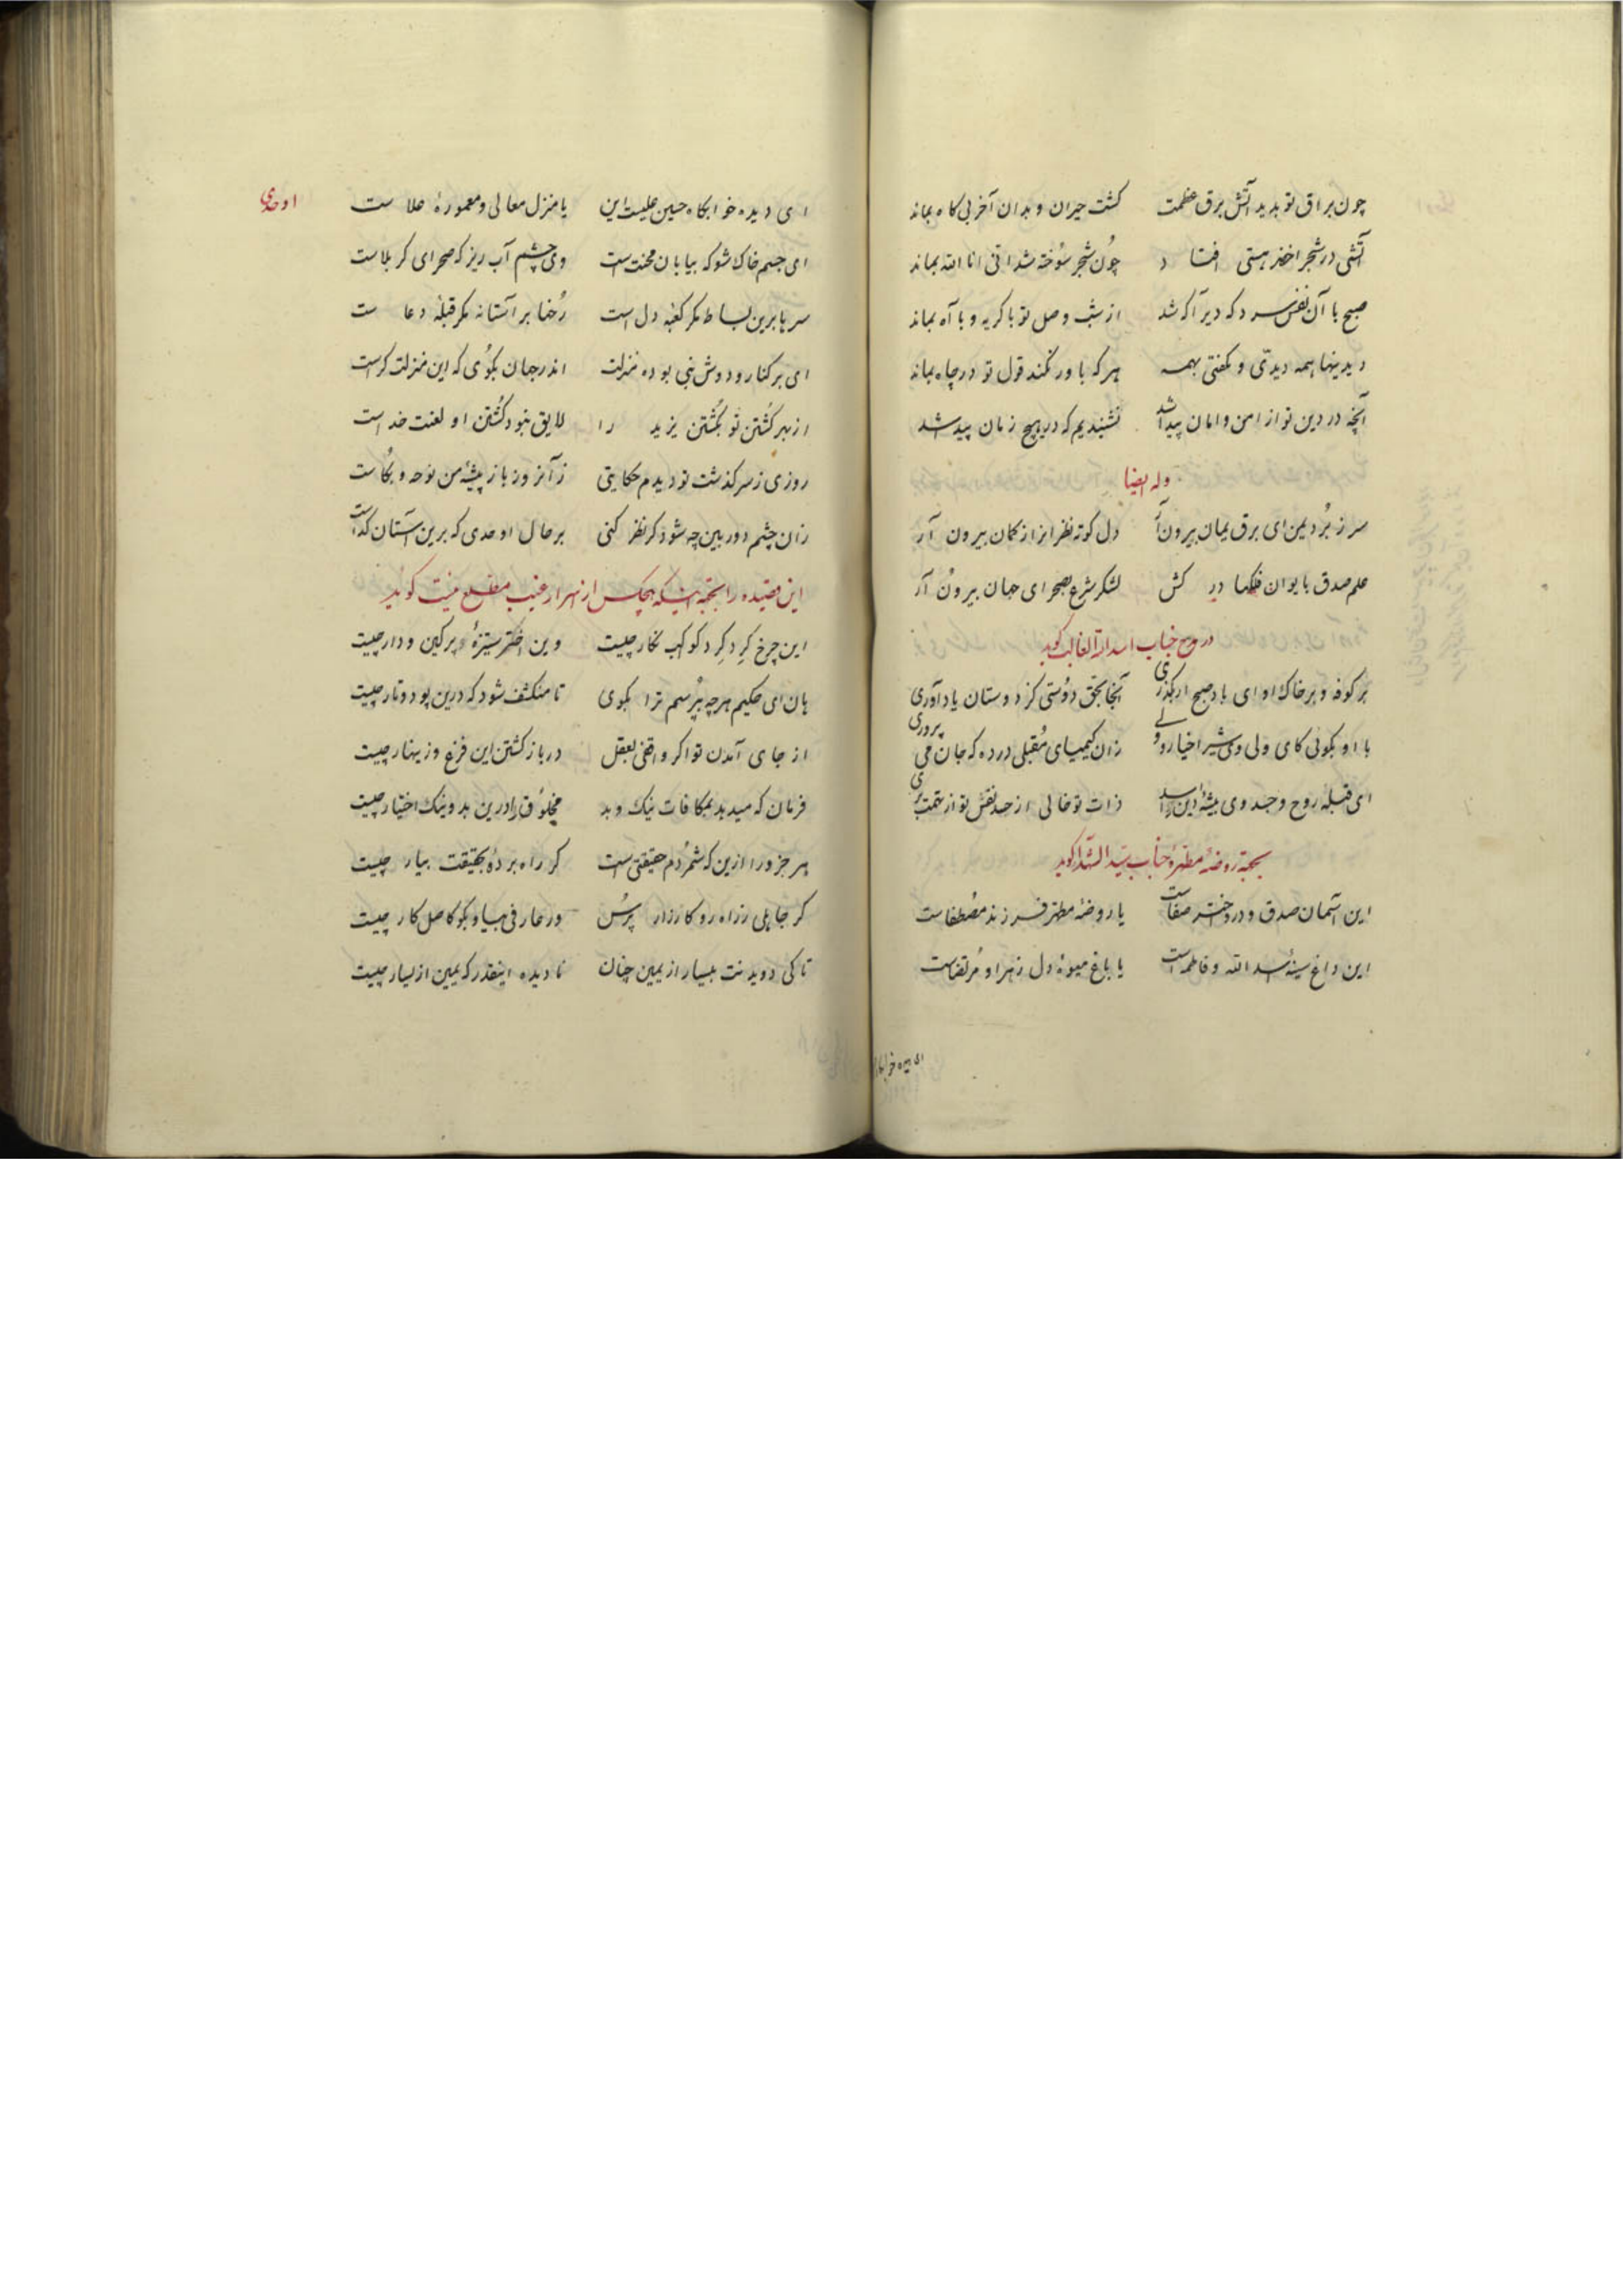 چون براق تو بدید آتش برق عظمت کشت حیران و بدان آخر بی کاه بماند
آتشی در شجر اخضر هستی افتاد چون شجر سوخته شد انی انا الله بماند
صبح با آن نفس سرد که دیر آکه شد از شب وصل تو با کریه و با آه بماند
دیدینها همه دیدی و بکفتی بهمه هر که باور نکند قول تو در چاه بماند
آنچه در دین تو از امن و امان پیدا شد نشنیدیم که در هیچ زمان پیدا شد
وله ایضا
سر ز برد یمن ای برق یمان بیرون آر دل کوته نظرانرا ز کمان بیرون آر
علم صدق بایوان فلکها در کش لشکر شرع بصحرای جهان بیرون آر
در مدح جناب اسدالله الغالب کوید
بر کوفه و بر خاک او ای باد صبح ار بکذری آنجا بحق دوستی کز دوستان یاد آوری
با او بکوئی کای ولی وی شیر اخیار و ولی زان کیمیای مقبلی در ده که جان می پروری
ای قبله روح و جسد وی بیشه دین را اسد ذات تو خالی از حسد نقش تو از تهمت بری
بجهة روضهٔ مطهرهٔ جناب سید الشهدا کوید
این آسمان صدق و درو اختر صفاست یا روضهٔ مطهر فرزند مصطفاست
این داغ سینهٔ اسد الله و فاطمه است یا باغ میوهٔ دل زهرا و مرتضاست
ای دیده خوابکاه
اوحدی
ای دیده خوابکاه حسین علیست این یا منزل معالی و معمورهٔ علاست
ای جسم خاک شو که بیابان محنت است وی چشم آب ریز که صحرای کربلاست
سر یا برین بساط مکر کعبه دل است رخ نا بر آستانه مکر قبلهٔ دعاست
ای بر کنار و دوش نبی بوده منزلت اندر جهان بکوی که این منزلت کراست
از بهر کشتن تو بکشتن یزید را لایق نبود کشتن او لعنت خداست
روزی ز سرکذشت تو دیدم حکایتی زآنروز باز پیشهٔ من نوحه و بکاست
زان چشم دوربین چه شود کر نظر کنی بر حال اوحدی که برین آستان کداست
این قصیده را بجهة اینکه هیچکس از اسرار غیب مطلع نیست کوید
این چرخ کرد کرد کواکب نکار چیست وین اختر ستیزهٔ پرکین و دار چیست
هان ای حکیم هر چه بپرسم ترا بکوی تا منکشف شود که درین پود و تار چیست
از جای آمدن تو اکر واقفی بعقل در باز کشتن این فزع و زینهار چیست
فرمان که میدهد بمکافات نیک و بد مخلوق را درین بد و نیک اختیار چیست
هر جزو را ازین که شمردم حقیقتی است کر راه بردهٔ بحقیقت بیار چیست
کر جاهلی ز راه رو کارزار پرس ور عارفی بیا و بکو کاصل کار چیست
تا کی دویدنت بیسار از یمین چنان نادیده اینقدر که یمین از یسار چیست